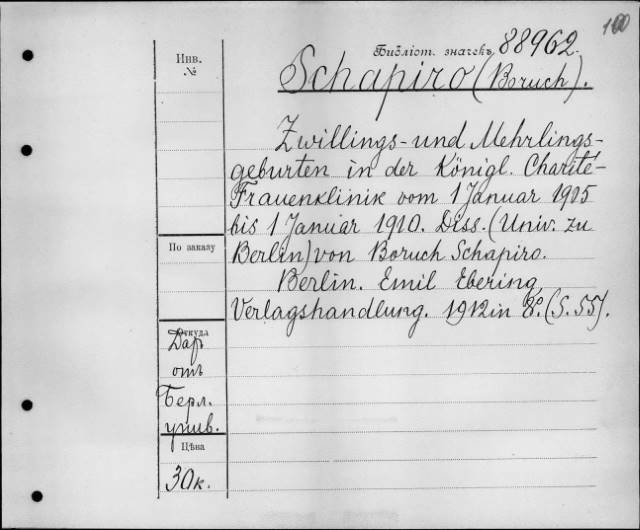 100
Библіот. значекъ 88962.
Инв.
№
Schapiro (Boruch).
Zwillings- und Mehrlings-
geburten in der Königl. Charité-
Frauenklinik vom 1 Januar 1905
bis 1 Januar 1910. Diss. (Univ. zu
Berlin) von Boruch Schapiro.
Berlin. Emil Ebering,
Verlagshandlung. 1912 in 8º. (S. 55).
По заказу
Откуда
Даръ
отъ
Берл.
унив.
Цѣна
30 к.